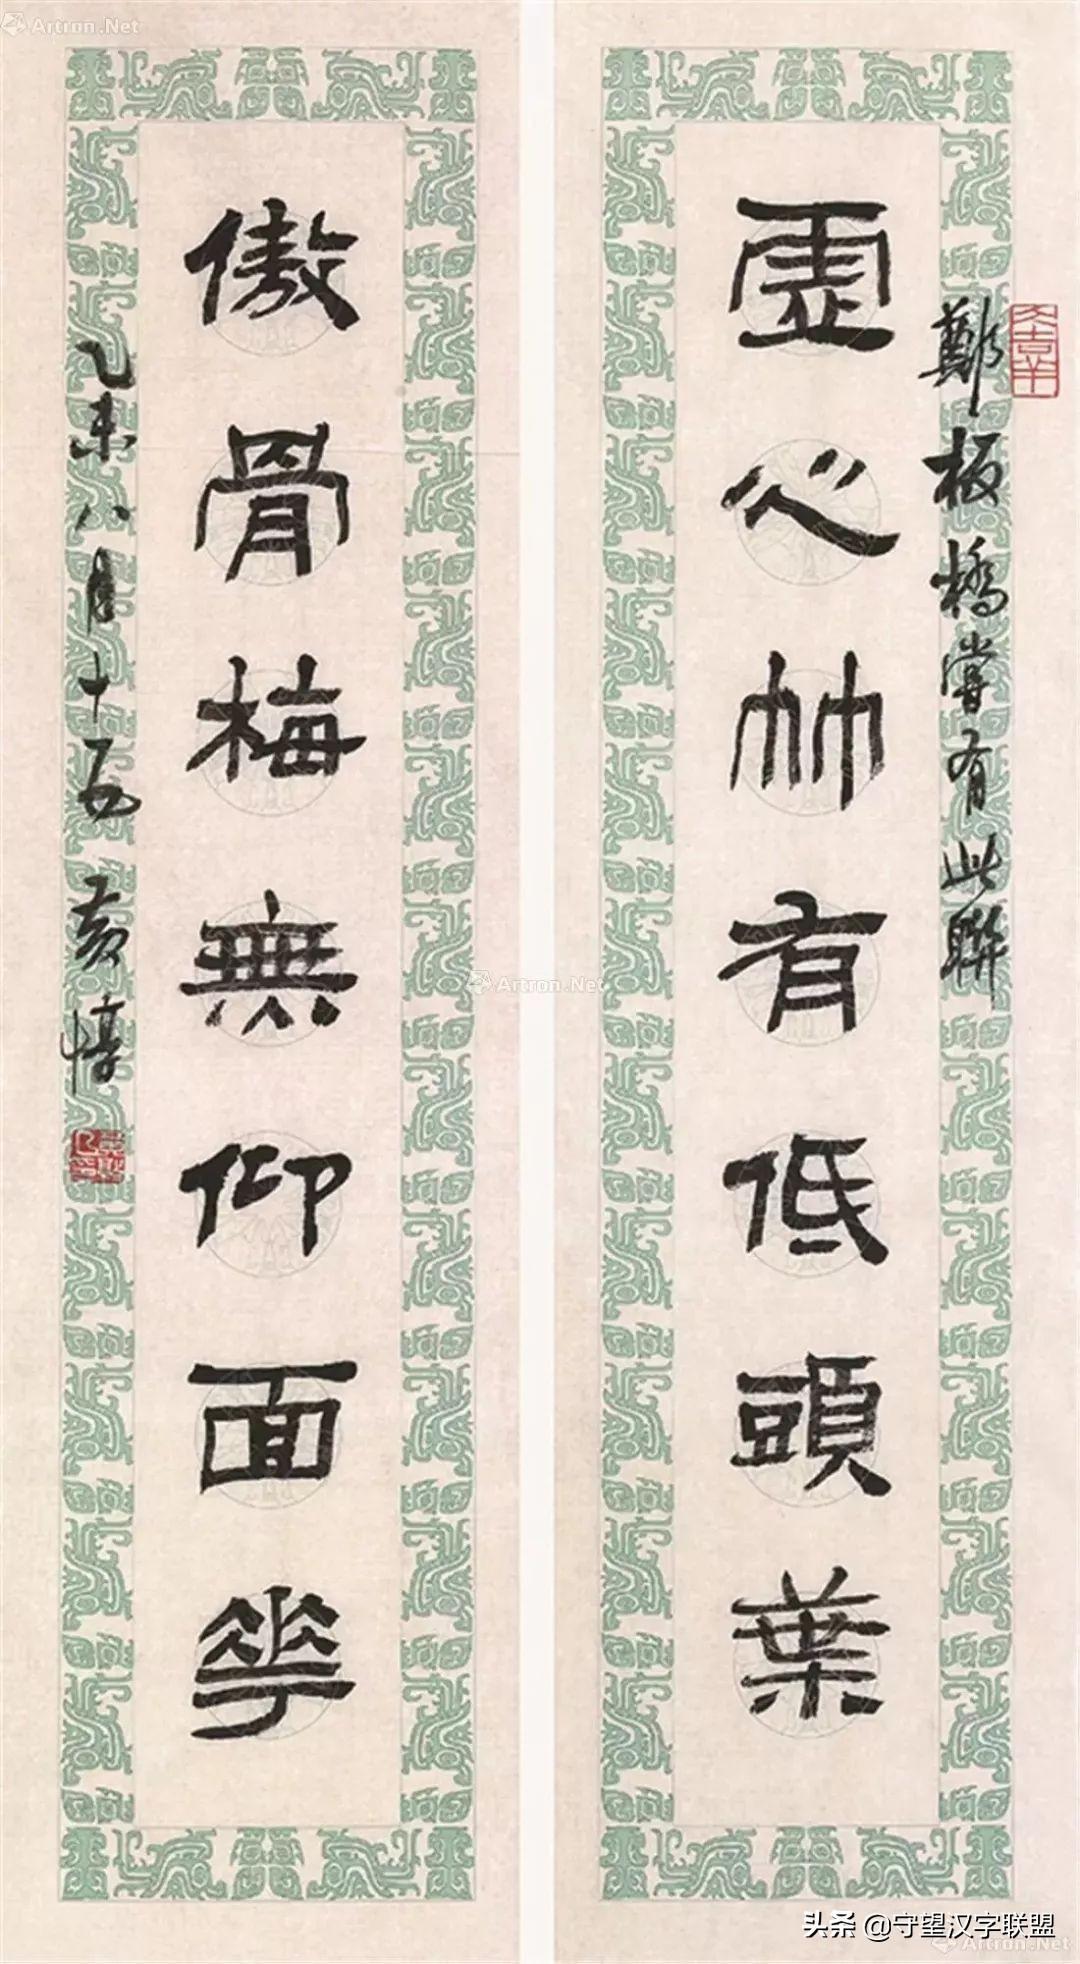 鄭板橋嘗有此聯
虛心竹有低頭葉
傲骨梅無仰面華
乙未八月十五 黄惇
Artron.Net
Artron.Net
头条 @守望汉字联盟
Artron.Net